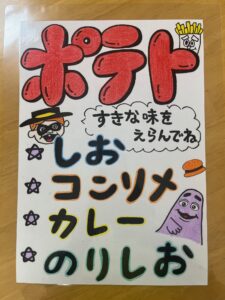 ポテト
すきな味を
えらんでね
しお
コンソメ
カレー
のりしお